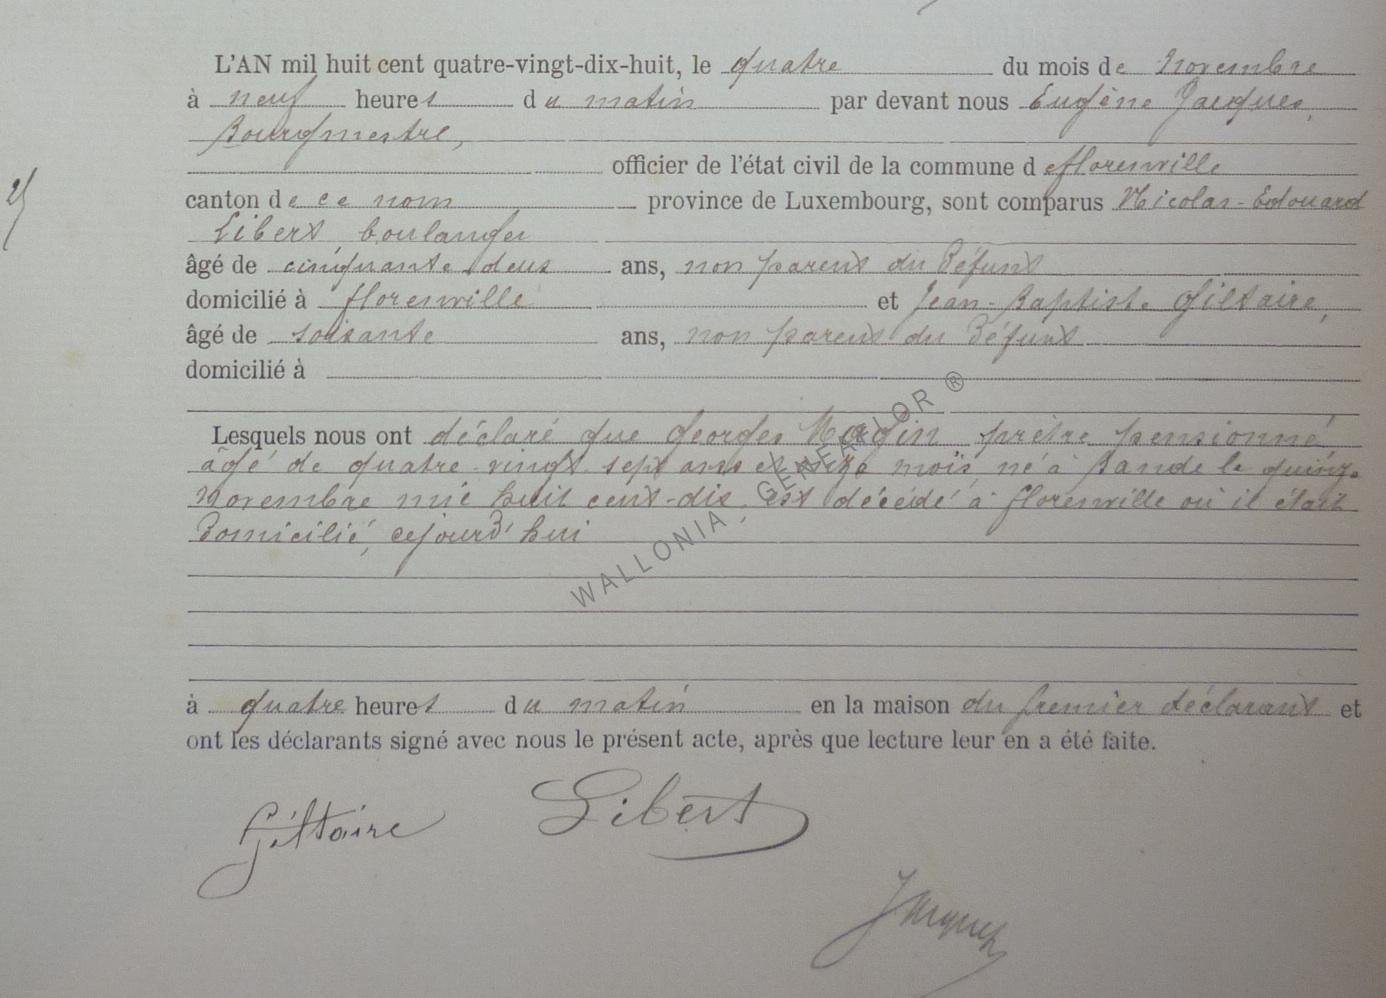 L'AN mil huit cent quatre-vingt-dix-huit, le quatre du mois de novembre
à neuf heures du matin par devant nous Eugène Jacques,
Bourgmestre,
officier de l'état civil de la commune d florenville
canton de ce nom province de Luxembourg, sont comparus Nicolas-Edouard
Libert, boulanger
âgé de cinquante deux ans, non parent du Défunt
domicilié à florenville et Jean-Baptiste Giltaire,
âgé de soixante ans, non parent du Défunt
domicilié à
Lesquels nous ont déclaré que Georges prêtre pensionné
âgé de quatre-vingt sept ans et mois né à le quinze
novembre mil huit cent-dix, est décédé à florenville où il était
Domicilié, cejourd'hui
à quatre heures du matin en la maison du premier déclarant et
ont les déclarants signé avec nous le présent acte, après que lecture leur en a été faite.
Giltaire Libert
Jacques
WALLONIA, GENEALOR ®